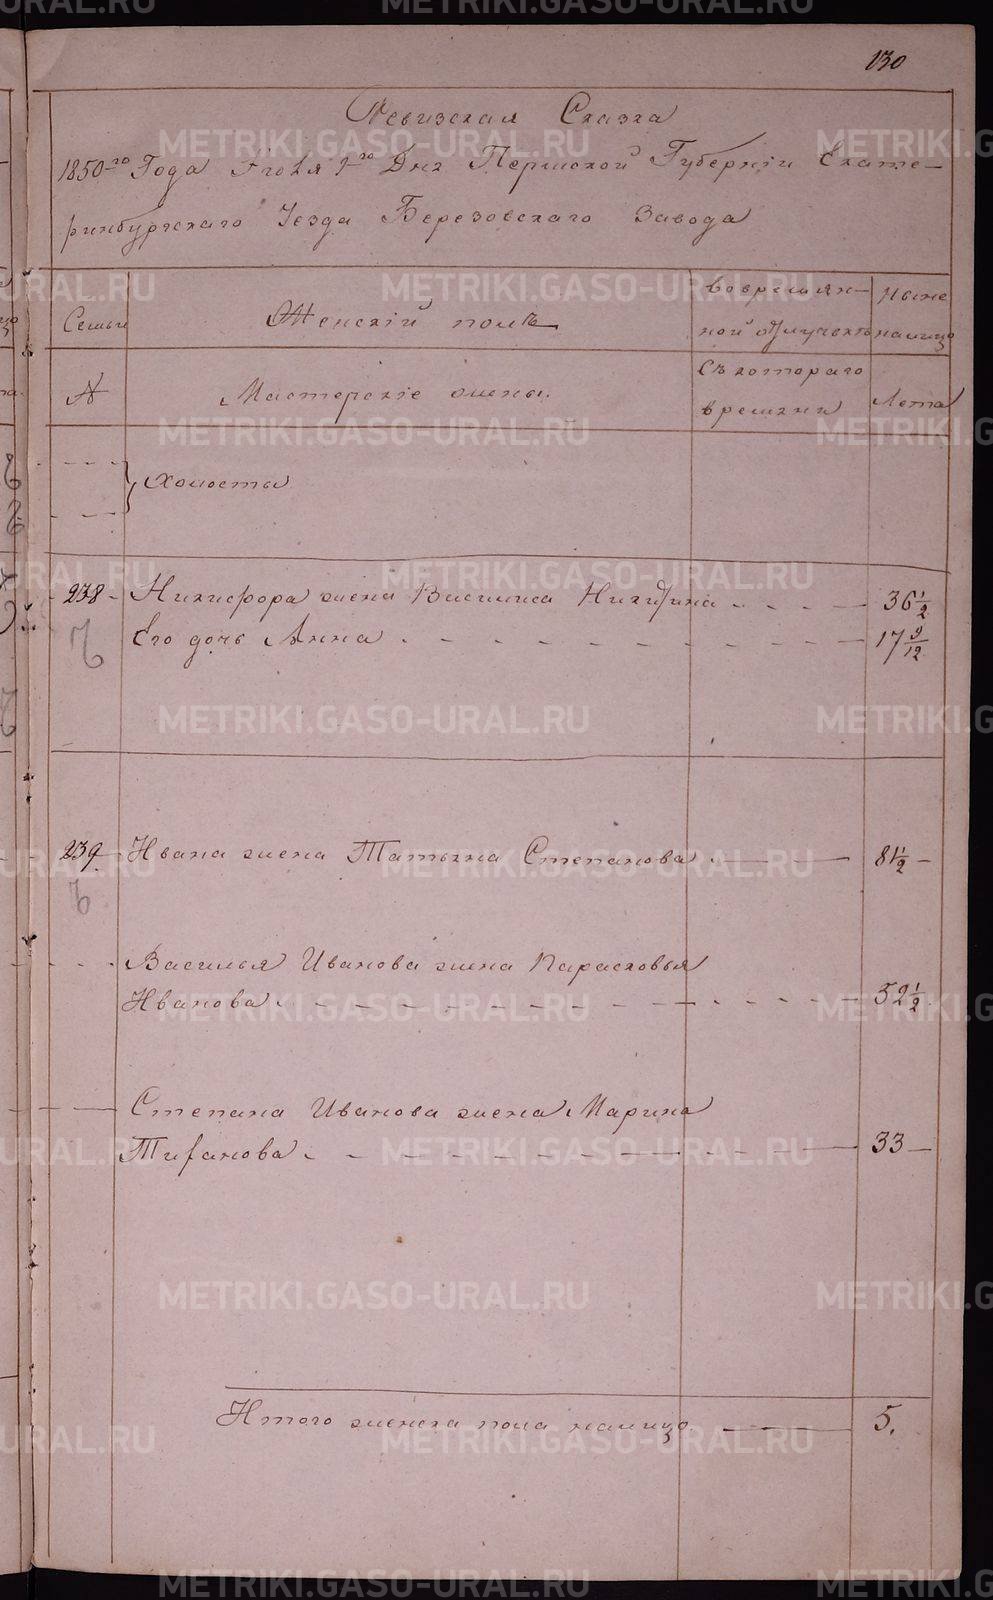 130
Ревизская Сказка
1850-го Года Июля 1-го Дня Пермской Губерніи Екате-
ринбургскаго Уезда Березовскаго Завода
Семьи
Женскій полъ
во времян-
ной отлучкѣ
Ныне
налицо
№
Мастерскіе жены.
Съ котораго
времяни
Лета
Холосты
238 Никифора жена Васили​са Никитина 36 1/2
Его дочь Анна 17 9/12
239 Ивана жена Татьяна Степанова 81 1/2
Василья Иванова жена Парасковья
Иванова 52 1/2
Степана Иванова жена Марина
Тифанова 33
Итого женска пола налицо 5.
METRIKI.GASO-URAL.RU